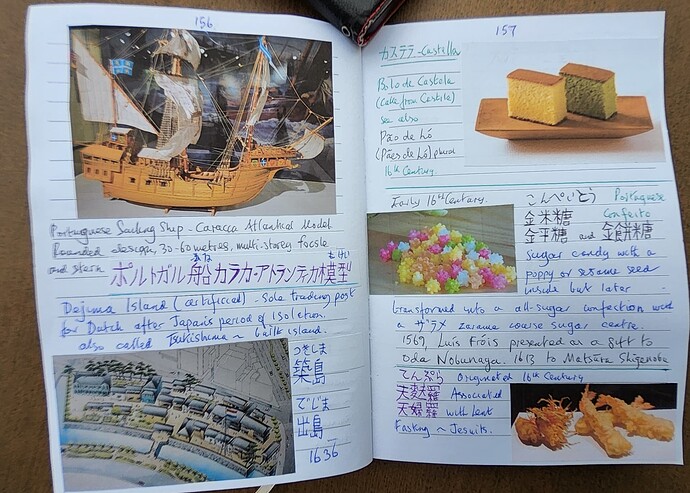 156
Portuguese Sailing Ship - Caracca Atlantica Model
Rounded design, 30-60 metres, multi-storey focsle
and stern
ふな もけい
ポルトガル船カラカ・アトランティカ模型
Dejima Island (artificial) - sole trading post
for Dutch after Japan's period of isolation.
also called Tsukishima ~ built island.
つきしま
築島
でじま
出島
1636
157
カステラ - Castella
Bolo de Castela
(cake from Castile)
see also
Pão de ló
(Pães de ló) plural
16th Century.
Early 16th Century.
こんぺいとう Portuguese
金米糖 Confeito
金平糖 and 金餅糖
Sugar candy with a
poppy or sesame seed
inside but later
transformed into a all-sugar confection with
a ザラメ zarame course sugar centre.
1569, Luís Fróis presented as a gift to
Oda Nobunaga. 1613 to Matsūra Shigenobu
てんぷら Originated 16th Century
天麩羅 Associated
天婦羅 with Lent
Fasting ~ Jesuits.